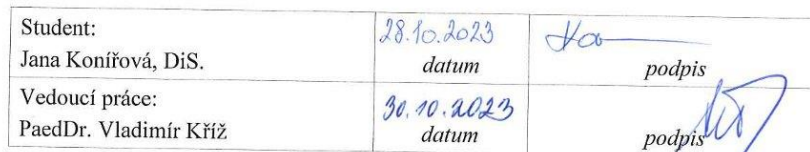 Student:
Jana Konířová, DiS.
28.10.2023
datum
podpis
Vedoucí práce:
PaedDr. Vladimír Kříž
30.10.2023
datum
podpis